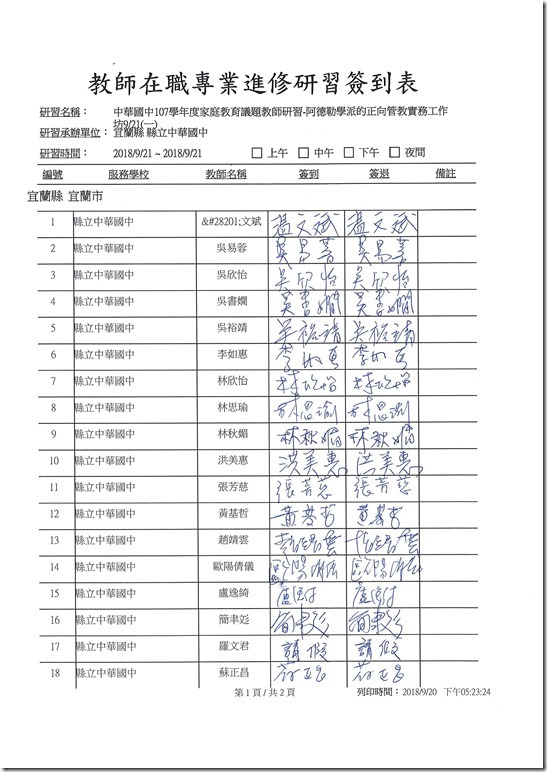 教師在職專業進修研習簽到表
研習名稱： 中華國中107學年度家庭教育議題教師研習-阿德勒學派的正向管教實務工作
坊9/21(一)
研習承辦單位： 宜蘭縣 縣立中華國中
研習時間： 2018/9/21 ~ 2018/9/21 □ 上午 □ 中午 □ 下午 □ 夜間
編號 服務學校 教師名稱 簽到 簽退 備註
宜蘭縣 宜蘭市
1 縣立中華國中 &#28201;文斌 溫文斌 溫文斌
2 縣立中華國中 吳易蓉 吳易蓉 吳易蓉
3 縣立中華國中 吳欣怡 吳欣怡 吳欣怡
4 縣立中華國中 吳書嫻 吳書嫻 吳書嫻
5 縣立中華國中 吳裕靖 吳裕靖 吳裕靖
6 縣立中華國中 李如惠 李如惠 李如惠
7 縣立中華國中 林欣怡 林欣怡 林欣怡
8 縣立中華國中 林思瑜 林思瑜 林思瑜
9 縣立中華國中 林秋媚 林秋媚 林秋媚
10 縣立中華國中 洪美惠 洪美惠 洪美惠
11 縣立中華國中 張芳慈 張芳慈 張芳慈
12 縣立中華國中 黃基哲 黃基哲 黃基哲
13 縣立中華國中 趙靖雲 趙靖雲 趙靖雲
14 縣立中華國中 歐陽倩儀 歐陽倩儀 歐陽倩儀
15 縣立中華國中 盧逸綺
16 縣立中華國中 簡聿彣 簡聿彣 簡聿彣
17 縣立中華國中 羅文君 請假 請假
18 縣立中華國中 蘇正昌 蘇正昌 蘇正昌
第 1 頁 / 共 2 頁 列印時間： 2018/9/20 下午05:23:24